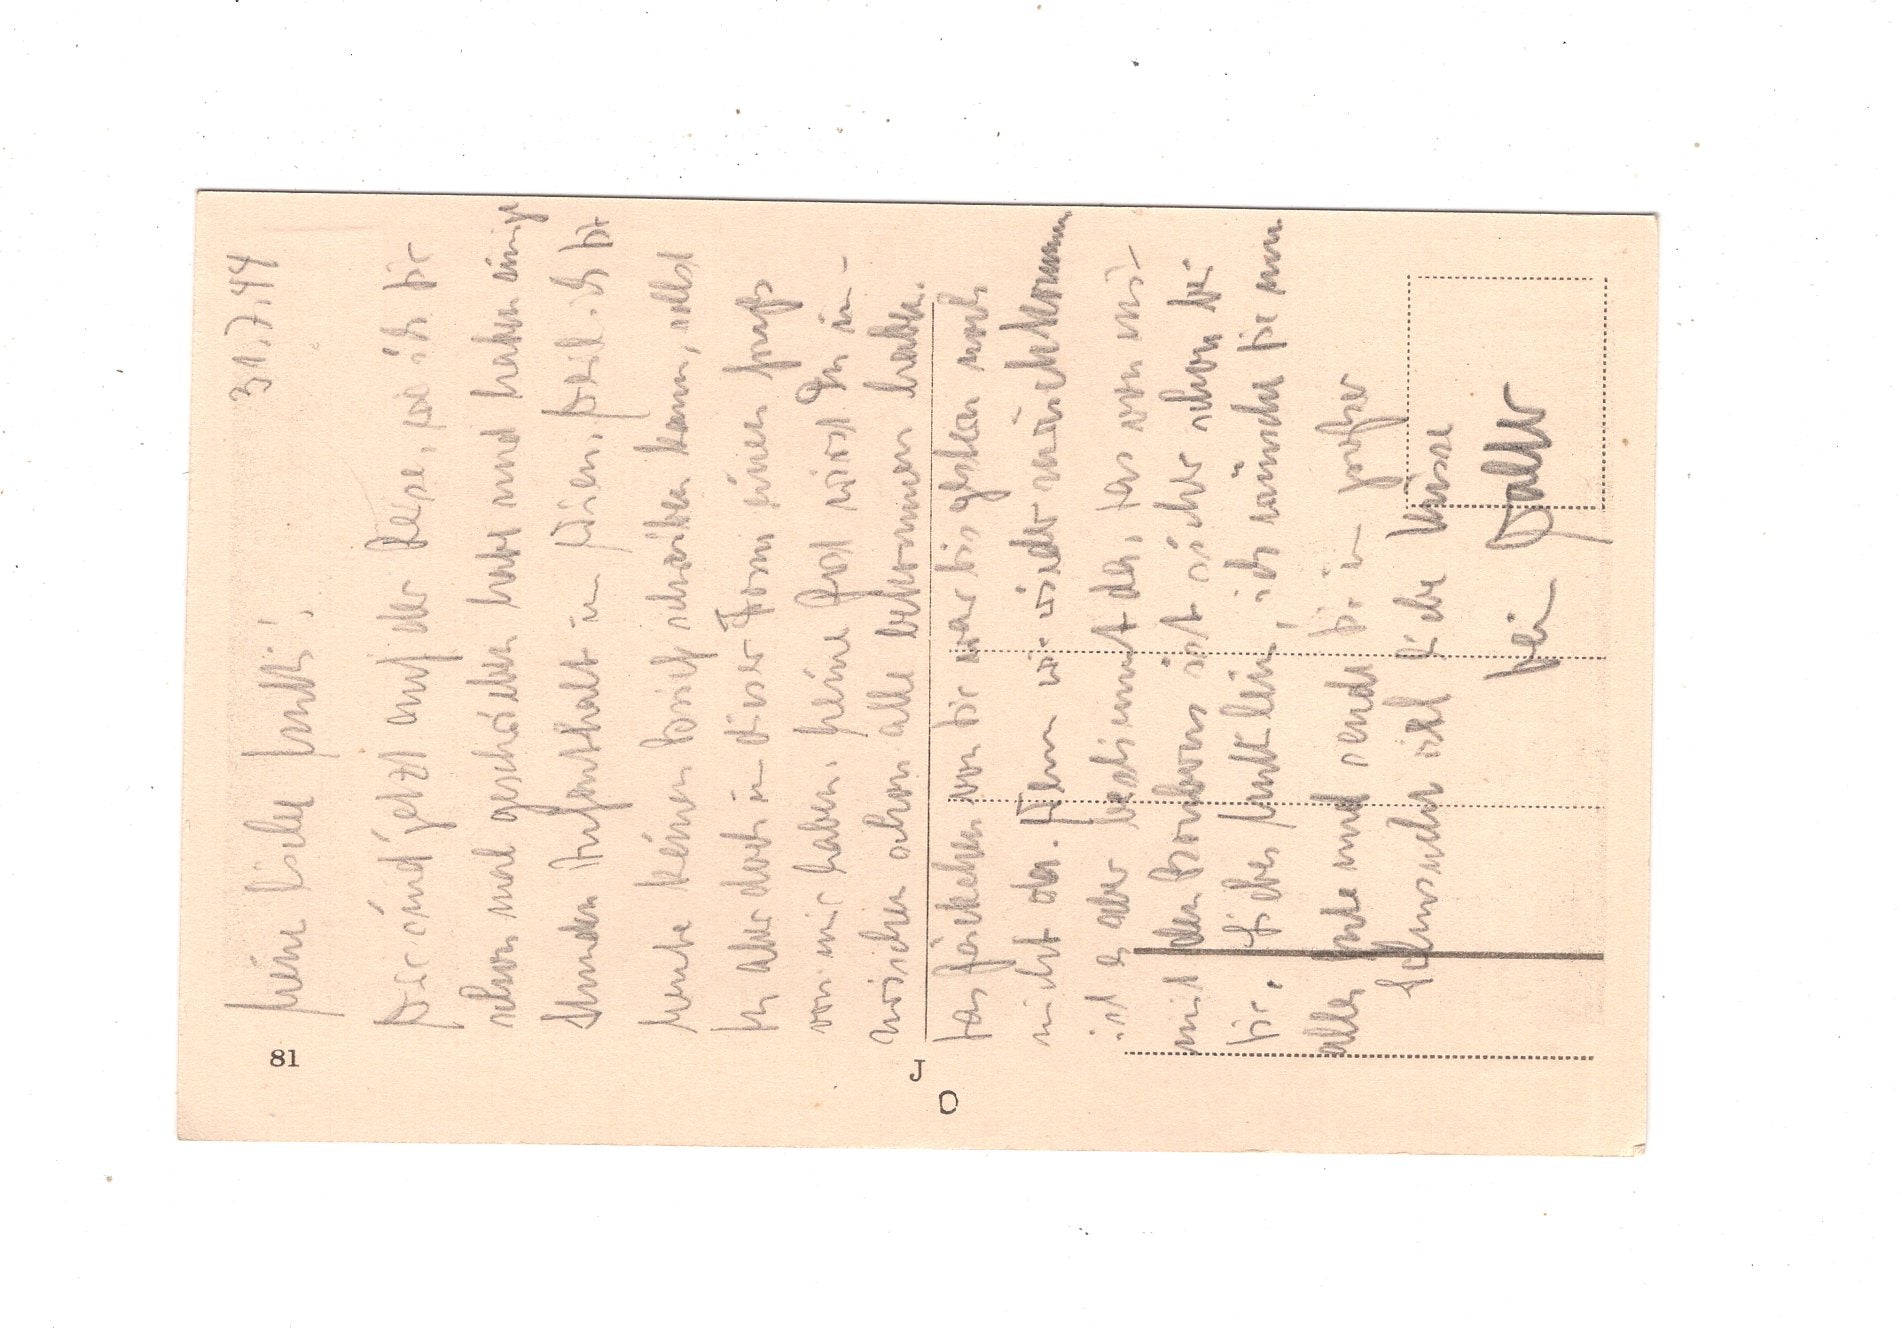 31.7.44
Meine liebe Mutti!
Wir sind jetzt auf der Reise, wie ich Dir
schon mal geschrieben habe und haben einige
Stunden Aufenthalt in Wien. Weil ich Dir
heute keinen Brief schreiben kann, sollst
Du aber doch in dieser Form einen Gruß
von mir haben. Meine Post wirst Du in-
zwischen schon alle bekommen haben.
Das Päckchen von Dir war bis gestern noch
nicht da. Wenn wir wieder zurückkommen
ist es aber bestimmt da. Das von mir
mit den Bonbons ist sicher schon bei
Dir. Liebes Muttilein, ich wünsche Dir nun
alles Gute und sende Dir in großer
Sehnsucht viel liebe Küsse
Dein
81
J
O